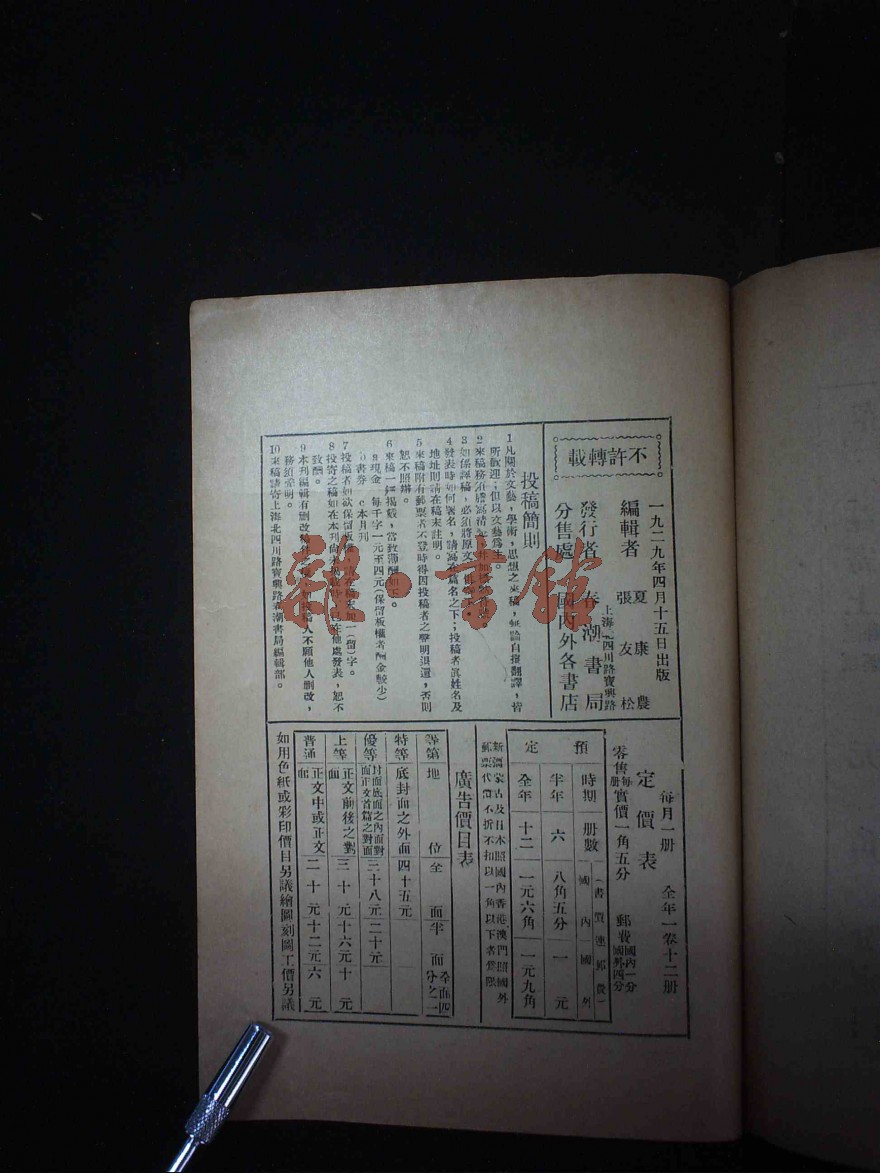 不許轉載
一九二九年四月十五日出版
編輯者 夏康農 張友松
發行者 春潮書局
上海北四川路寶興路
分售處 國內外各書店
投稿簡則
1 凡關於文藝,學術,思想之來稿,無論自撰翻譯,皆
所歡迎;但以文藝為主。
2 來稿務須謄寫清
3 如係譯稿,必須將原文
4 發表時如何署名,請寫在篇名之下;投稿者眞姓名及
地址則請在稿末註明。
5 來稿附有郵票者不登時得因投稿者之聲明退還,否則
恕不照辦。
6 來稿一經揭載,當致薄酬如下。
a 現金 每千字一元至四元(保留版權者酬金較少)
b 書券 c 本月刊
7 投稿者如欲保留版權 在稿末加一(留)字。
8 投寄之稿如在本刊尚未 時 已在他處發表,恕不
致酬。
9 本刊編輯有刪改稿 如投稿人不願他人刪改,
務須聲明。
10 來稿請寄上海北四川路寶興路春潮書局編輯部。
每月一册 全年一卷十二册
定價表
零售每册實價一角五分 郵費國內一分國外四分
預定
時期 册數 (書價連郵費) 國內 國外
半年 六 八角五分 一元
全年 十二 一元六角 一元九角
新疆蒙古及日本照國內香港澳門照國外
郵票代價不折不扣以一角以下者為限
廣告價目表
等第 地位 全面 半面 全面四分之一
特等 底封面之外面 四十五元
優等 封面底面之內面對面正文首篇之對面 三十八元 二十元
上等 正文前後之對面 三十元 十六元 十元
普通 正文中或正文 面 二十元 十二元 六元
如用色紙或彩印價目另議繪圖刻圖工價另議
雜·書館